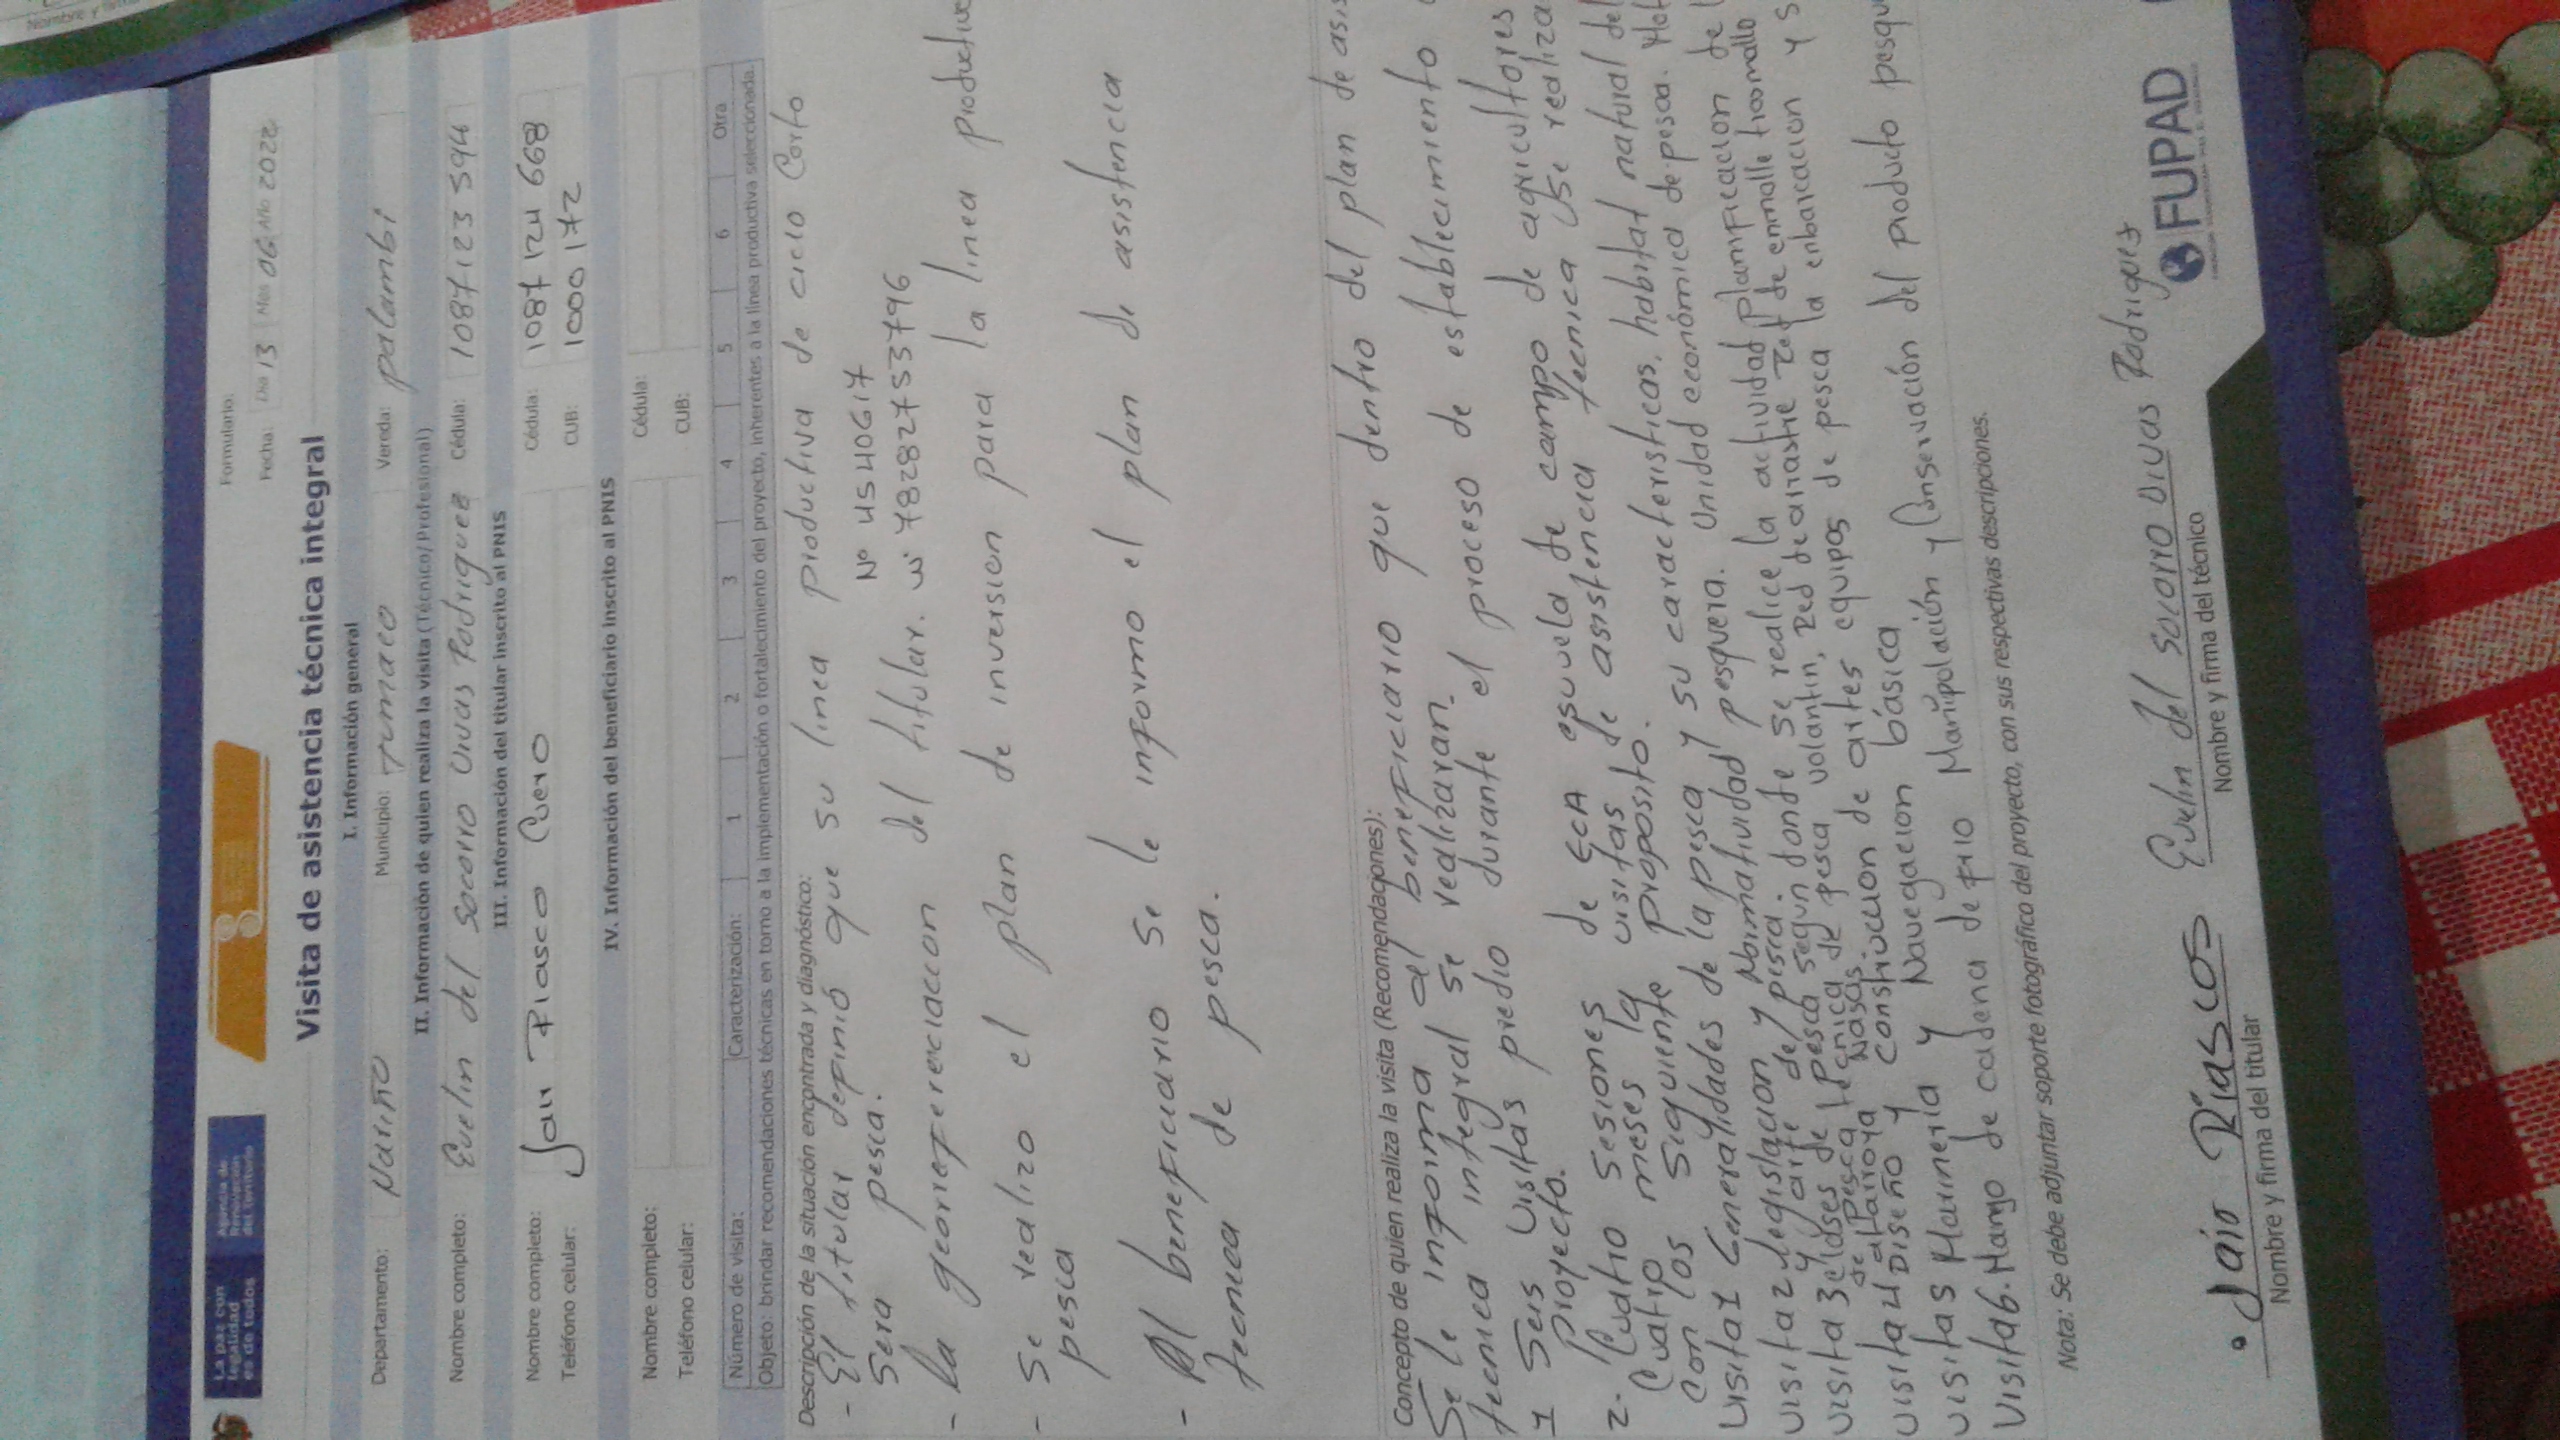 La paz con
legalidad
es de todos
Agencia de
Renovación
del Territorio
Formulario:
Fecha: Día 13 Mes 06 Año 2022
Visita de asistencia técnica integral
I. Información general
Departamento: Nariño Municipio: Tumaco Vereda: palambi
II. Información de quien realiza la visita (Técnico/Profesional)
Nombre completo: Evelin del Socorro Vivas Rodriguez Cédula: 1087123594
III. Información del titular inscrito al PNIS
Nombre completo: Riasco Cuero Cédula: 1087124668
Teléfono celular: CUB: 1000172
IV. Información del beneficiario inscrito al PNIS
Nombre completo: Cédula:
Teléfono celular: CUB:
Número de visita: Caracterización: 1 2 3 4 5 6 Otra
Objeto: brindar recomendaciones técnicas en torno a la implementación o fortalecimiento del proyecto, inherentes a la línea productiva seleccionada.
Descripción de la situación encontrada y diagnóstico:
- El titular definió que su linea productiva de ciclo Corto
Sera pesca. Nº 1.4540617
- la georreferenciacion del titular. w: 78282753796
- Se realizo el plan de inversion para la linea productiva
pesca
- Al beneficiario se le informo el plan de asistencia
tecnica de pesca.
Concepto de quien realiza la visita (Recomendaciones):
Se le informa al beneficiario que dentro del plan de asis
tecnica integral se realizaran.
1 Seis Visitas predio durante el proceso de establecimiento
Proyecto.
2. Cuatro Sesiones de ECA escuela de campo de agricultores
Cuatro meses la visitas de asistencia tecnica se realiza
con los siguiente proposito.
Visita 1 Generalidades de la pesca y su caracteristicas, habitat natural del
Visita 2 legislacion y Normatividad pesquera. Unidad económica de pesca.
y arte de pesca. donde se realice la actividad planificacion de l
Visita 3 clases de pesca segun
de Pesca tecnica de pesca volantin, red de arrastre red de enmalle trasmallo
atarraya Nasas.
Visita 4 Diseño y construccion de artes equipos de pesca la enbarcacion y s
Visita 5 Marineria y Navegacion básica
Visita 6. Manejo de cadena de frio Manipolación y Conservación del producto pesqu
Nota: Se debe adjuntar soporte fotográfico del proyecto, con sus respectivas descripciones.
Jairo Riascos Evelin del Socorro Vivas Rodriguez
Nombre y firma del titular Nombre y firma del técnico
FUPAD